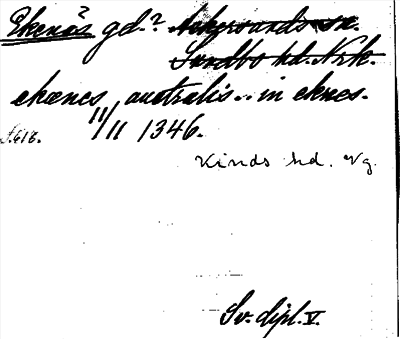 Ekenäs? gd.? Askersunds sn.
Sundbo hd. Nrk.
ekæncs australis.. in eknes.
S. 618. 11/11 1346.
Kinds hd. Vg.
Sv. dipl. V.